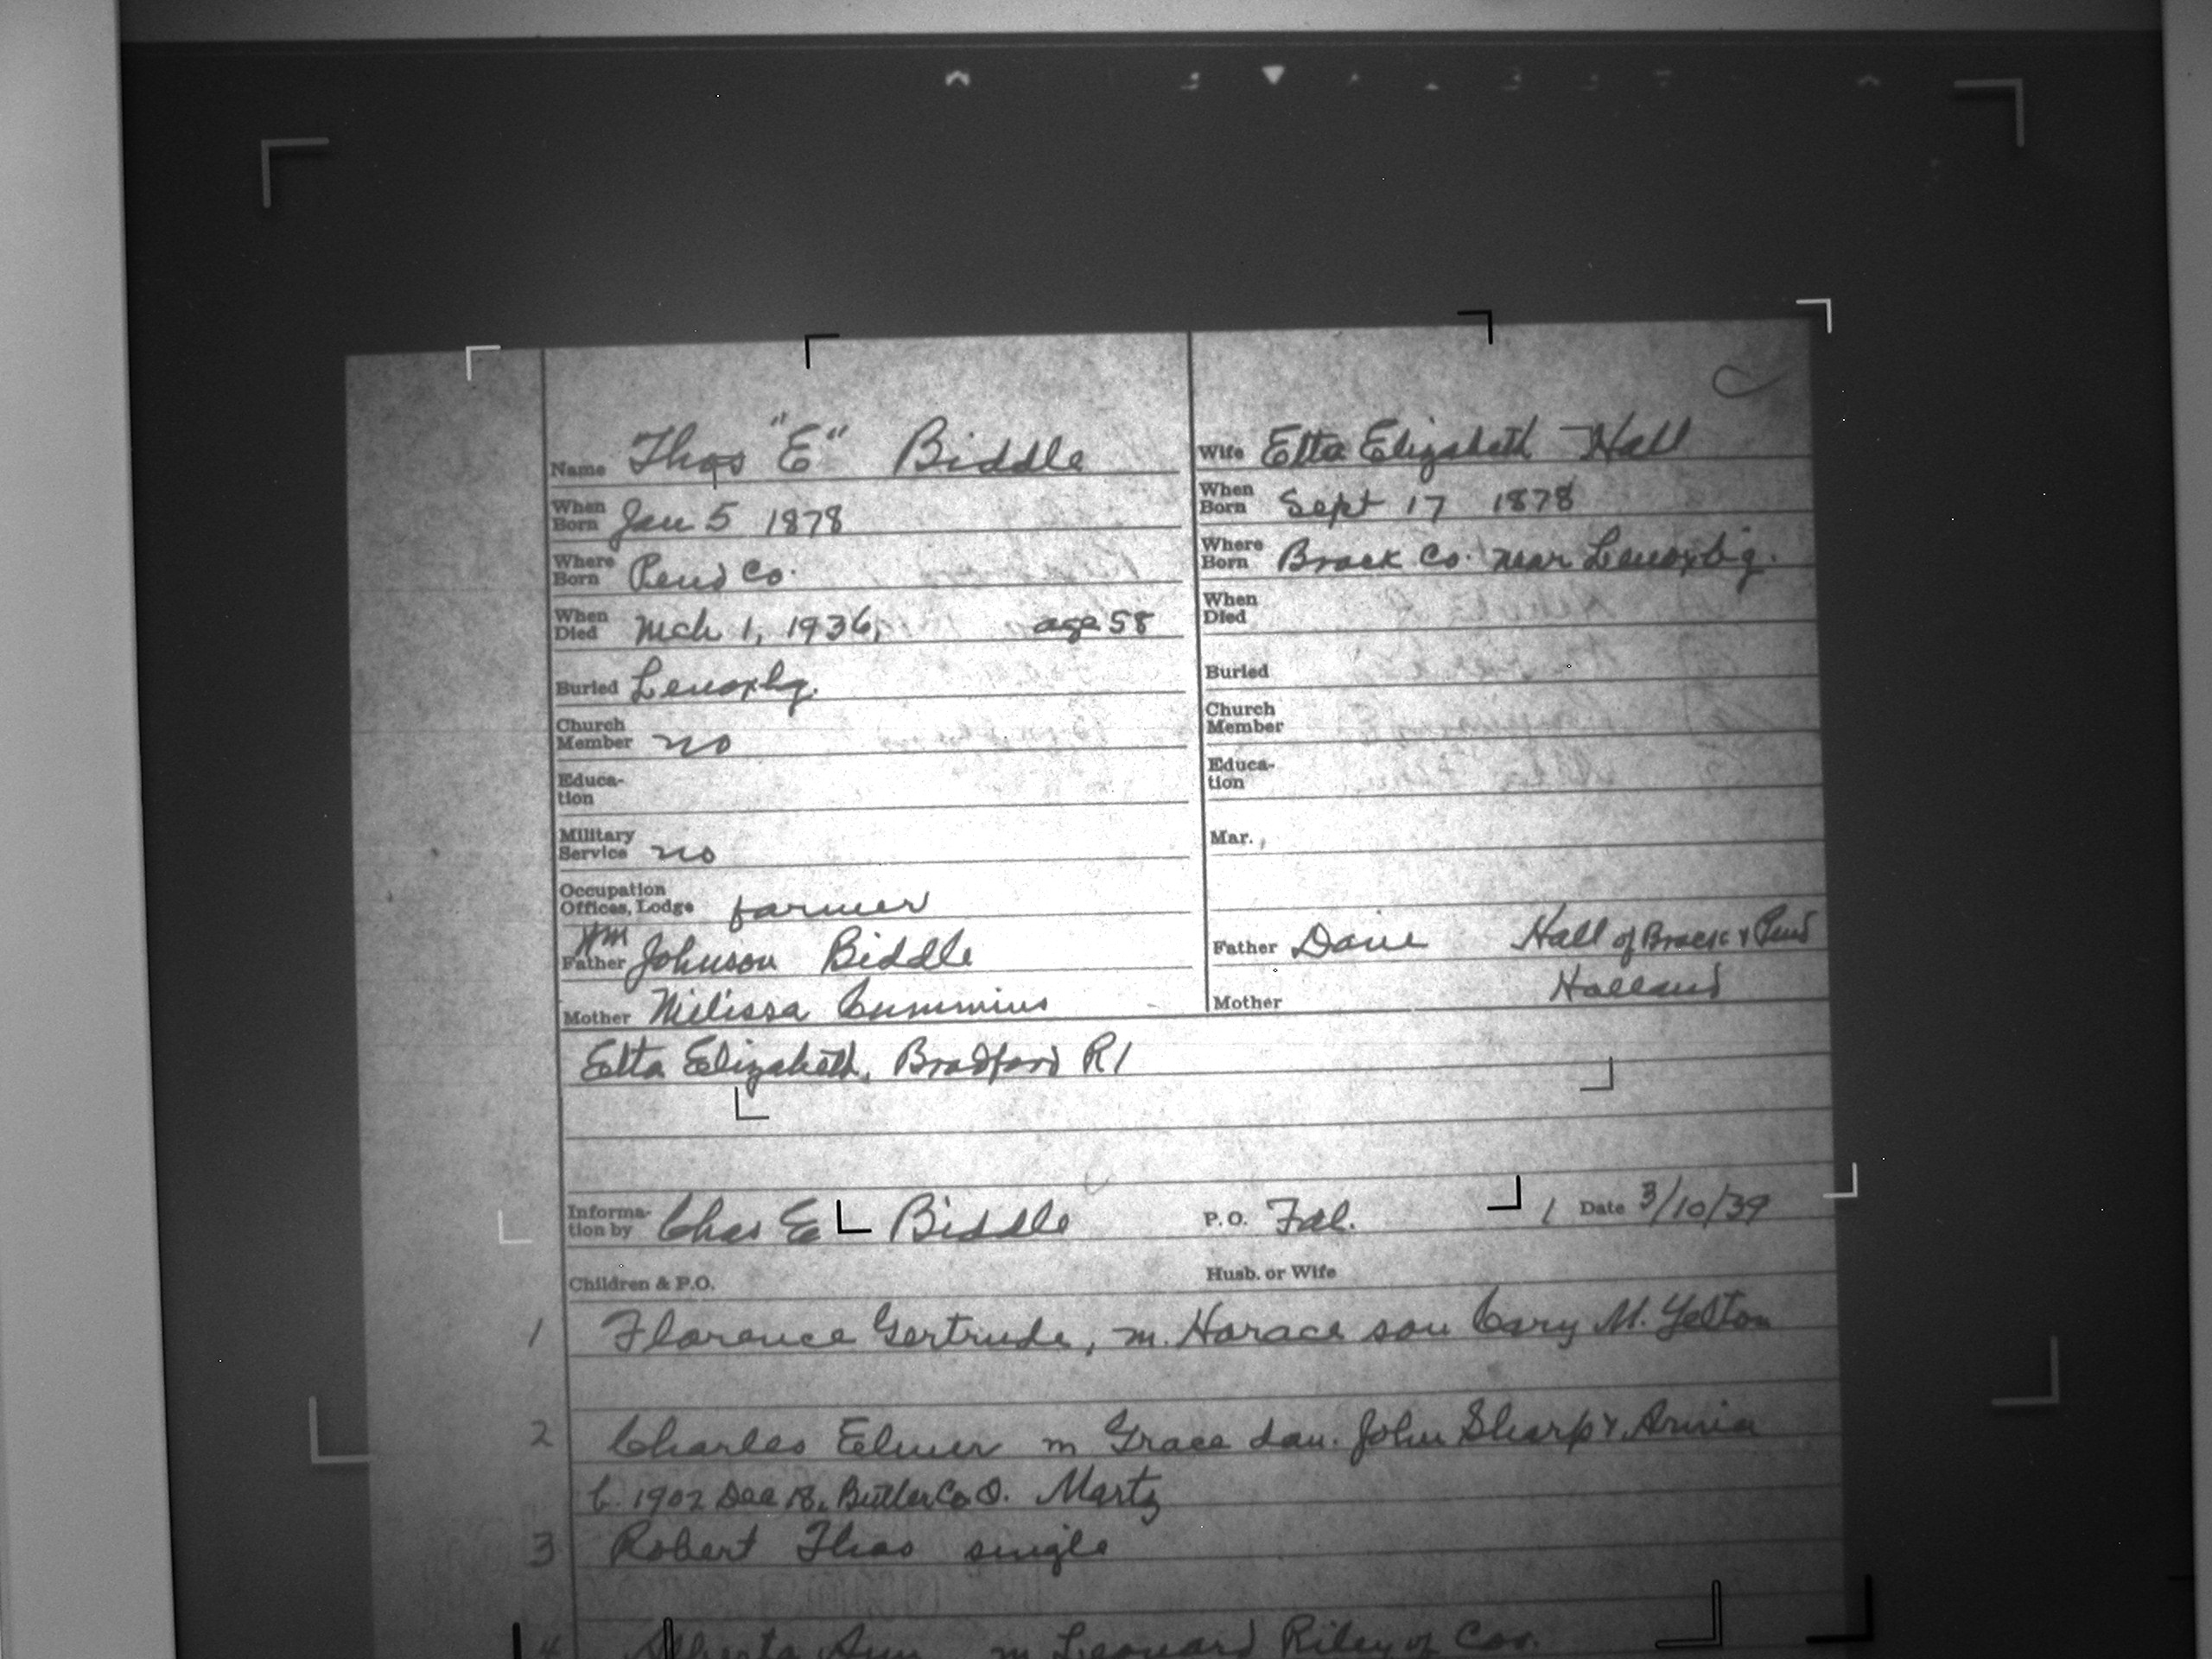 Name Thos "E" Biddle
When Born Jan 5 1878
Where Born Pend Co.
When Died Mch 1, 1936, age 58
Buried Lenoxbg.
Church Member no
Educa-tion
Military Service no
Occupation Offices, Lodge farmer
Father Wm Johnson Biddle
Mother Milissa Cummins
Wife Etta Elizabeth Hall
When Born Sept 17 1878
Where Born Brack Co. near Lenoxbg.
When Died
Buried
Church Member
Educa-tion
Mar.,
Father Dave Hall of Brack & Pend
Mother Holland
Etta Elizabeth, Bradford R1
Informa-tion by Chas E Biddle P.O. Fal. 1 Date 3/10/39
Children & P.O. Husb. or Wife
1 Florence Gertrude, m. Horace son Cary M. Yelton
2 Charles Elmer m Grace dau. John Sharp &
b. 1902 Dec 18, Butler Co. O. Martz
3 Robert Thos single
4 Alberta Ann m Leonard Riley of Cov.